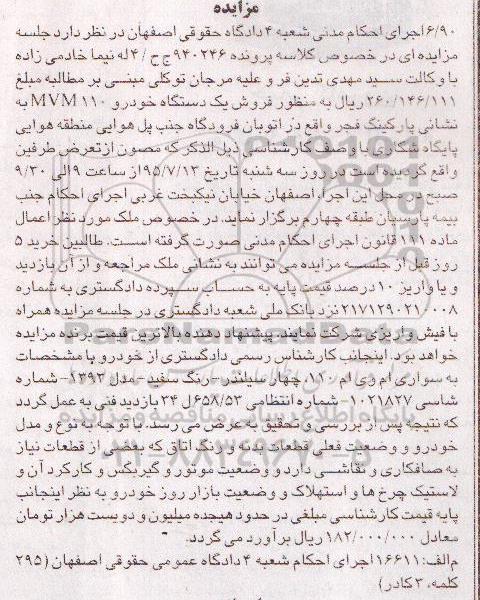 مزایده
۶/۹۰ اجرای احکام مدنی شعبه ۴ دادگاه حقوقی اصفهان در نظر دارد جلسه
مزایده ای در خصوص کلاسه پرونده ۹۴۰۲۴۶ ج ح / ۴ له نیما خادمی زاده
با وکالت سید مهدی تدین فر و علیه مرجان توکلی مبنی بر مطالبه مبلغ
۲۶۰/۱۴۶/۱۱۱ ریال به منظور فروش یک دستگاه خودرو MVM ۱۱۰ به
نشانی پارکینگ فجر واقع در اتوبان فرودگاه جنب پل هوایی منطقه هوایی
پایگاه شکاری با وصف کارشناسی ذیل الذکر که مصون از تعرض طرفین
واقع گردیده است در روز سه شنبه تاریخ ۹۵/۷/۱۳ از ساعت ۹ الی ۹/۳۰
صبح در محل این اجرا اصفهان خیابان نیکبخت غربی اجرای احکام جنب
بیمه پارسیان طبقه چهارم برگزار نماید. در خصوص ملک مورد نظر اعمال
ماده ۱۱۱ قانون اجرای احکام مدنی صورت گرفته است. طالبین خرید ۵
روز قبل از جلسه مزایده می توانند به نشانی ملک مراجعه و از آن بازدید
و با واریز ۱۰ درصد قیمت پایه به حساب سپرده دادگستری به شماره
۲۱۷۱۲۹۰۲۱۰۰۰۸ نزد بانک ملی شعبه دادگستری در جلسه مزایده همراه
با فیش واریزی شرکت نمایند. پیشنهاد دهنده بالاترین قیمت برنده مزایده
خواهد بود. اینجانب کارشناس رسمی دادگستری از خودرو با مشخصات
به سواری ام وی ام ۱۱۰، چهار سیلندر- رنگ سفید - مدل ۱۳۹۲- شماره
شاسی ۱۰۲۱۸۲۷- شماره انتظامی ۶۵۸/۵۳ ل ۳۴ بازدید فنی به عمل گردد
که نتیجه پس از بررسی و تحقیق به عرض می رسد. با توجه به نوع و مدل
خودرو و وضعیت فعلی قطعات بدنه و رنگ اتاق که بعضی از قطعات نیاز
به صافکاری و نقاشی دارد و وضعیت موتور و گیربکس و کارکرد آن و
لاستیک چرخ ها و استهلاک و وضعیت بازار روز خودرو به نظر اینجانب
پایه قیمت کارشناسی مبلغی در حدود هیجده میلیون و دویست هزار تومان
معادل ۱۸۲/۰۰۰/۰۰۰ ریال برآورد می گردد.
م الف: ۱۶۶۱۱ اجرای احکام شعبه ۴ دادگاه عمومی حقوقی اصفهان (۲۹۵
کلمه، ۳ کادر)